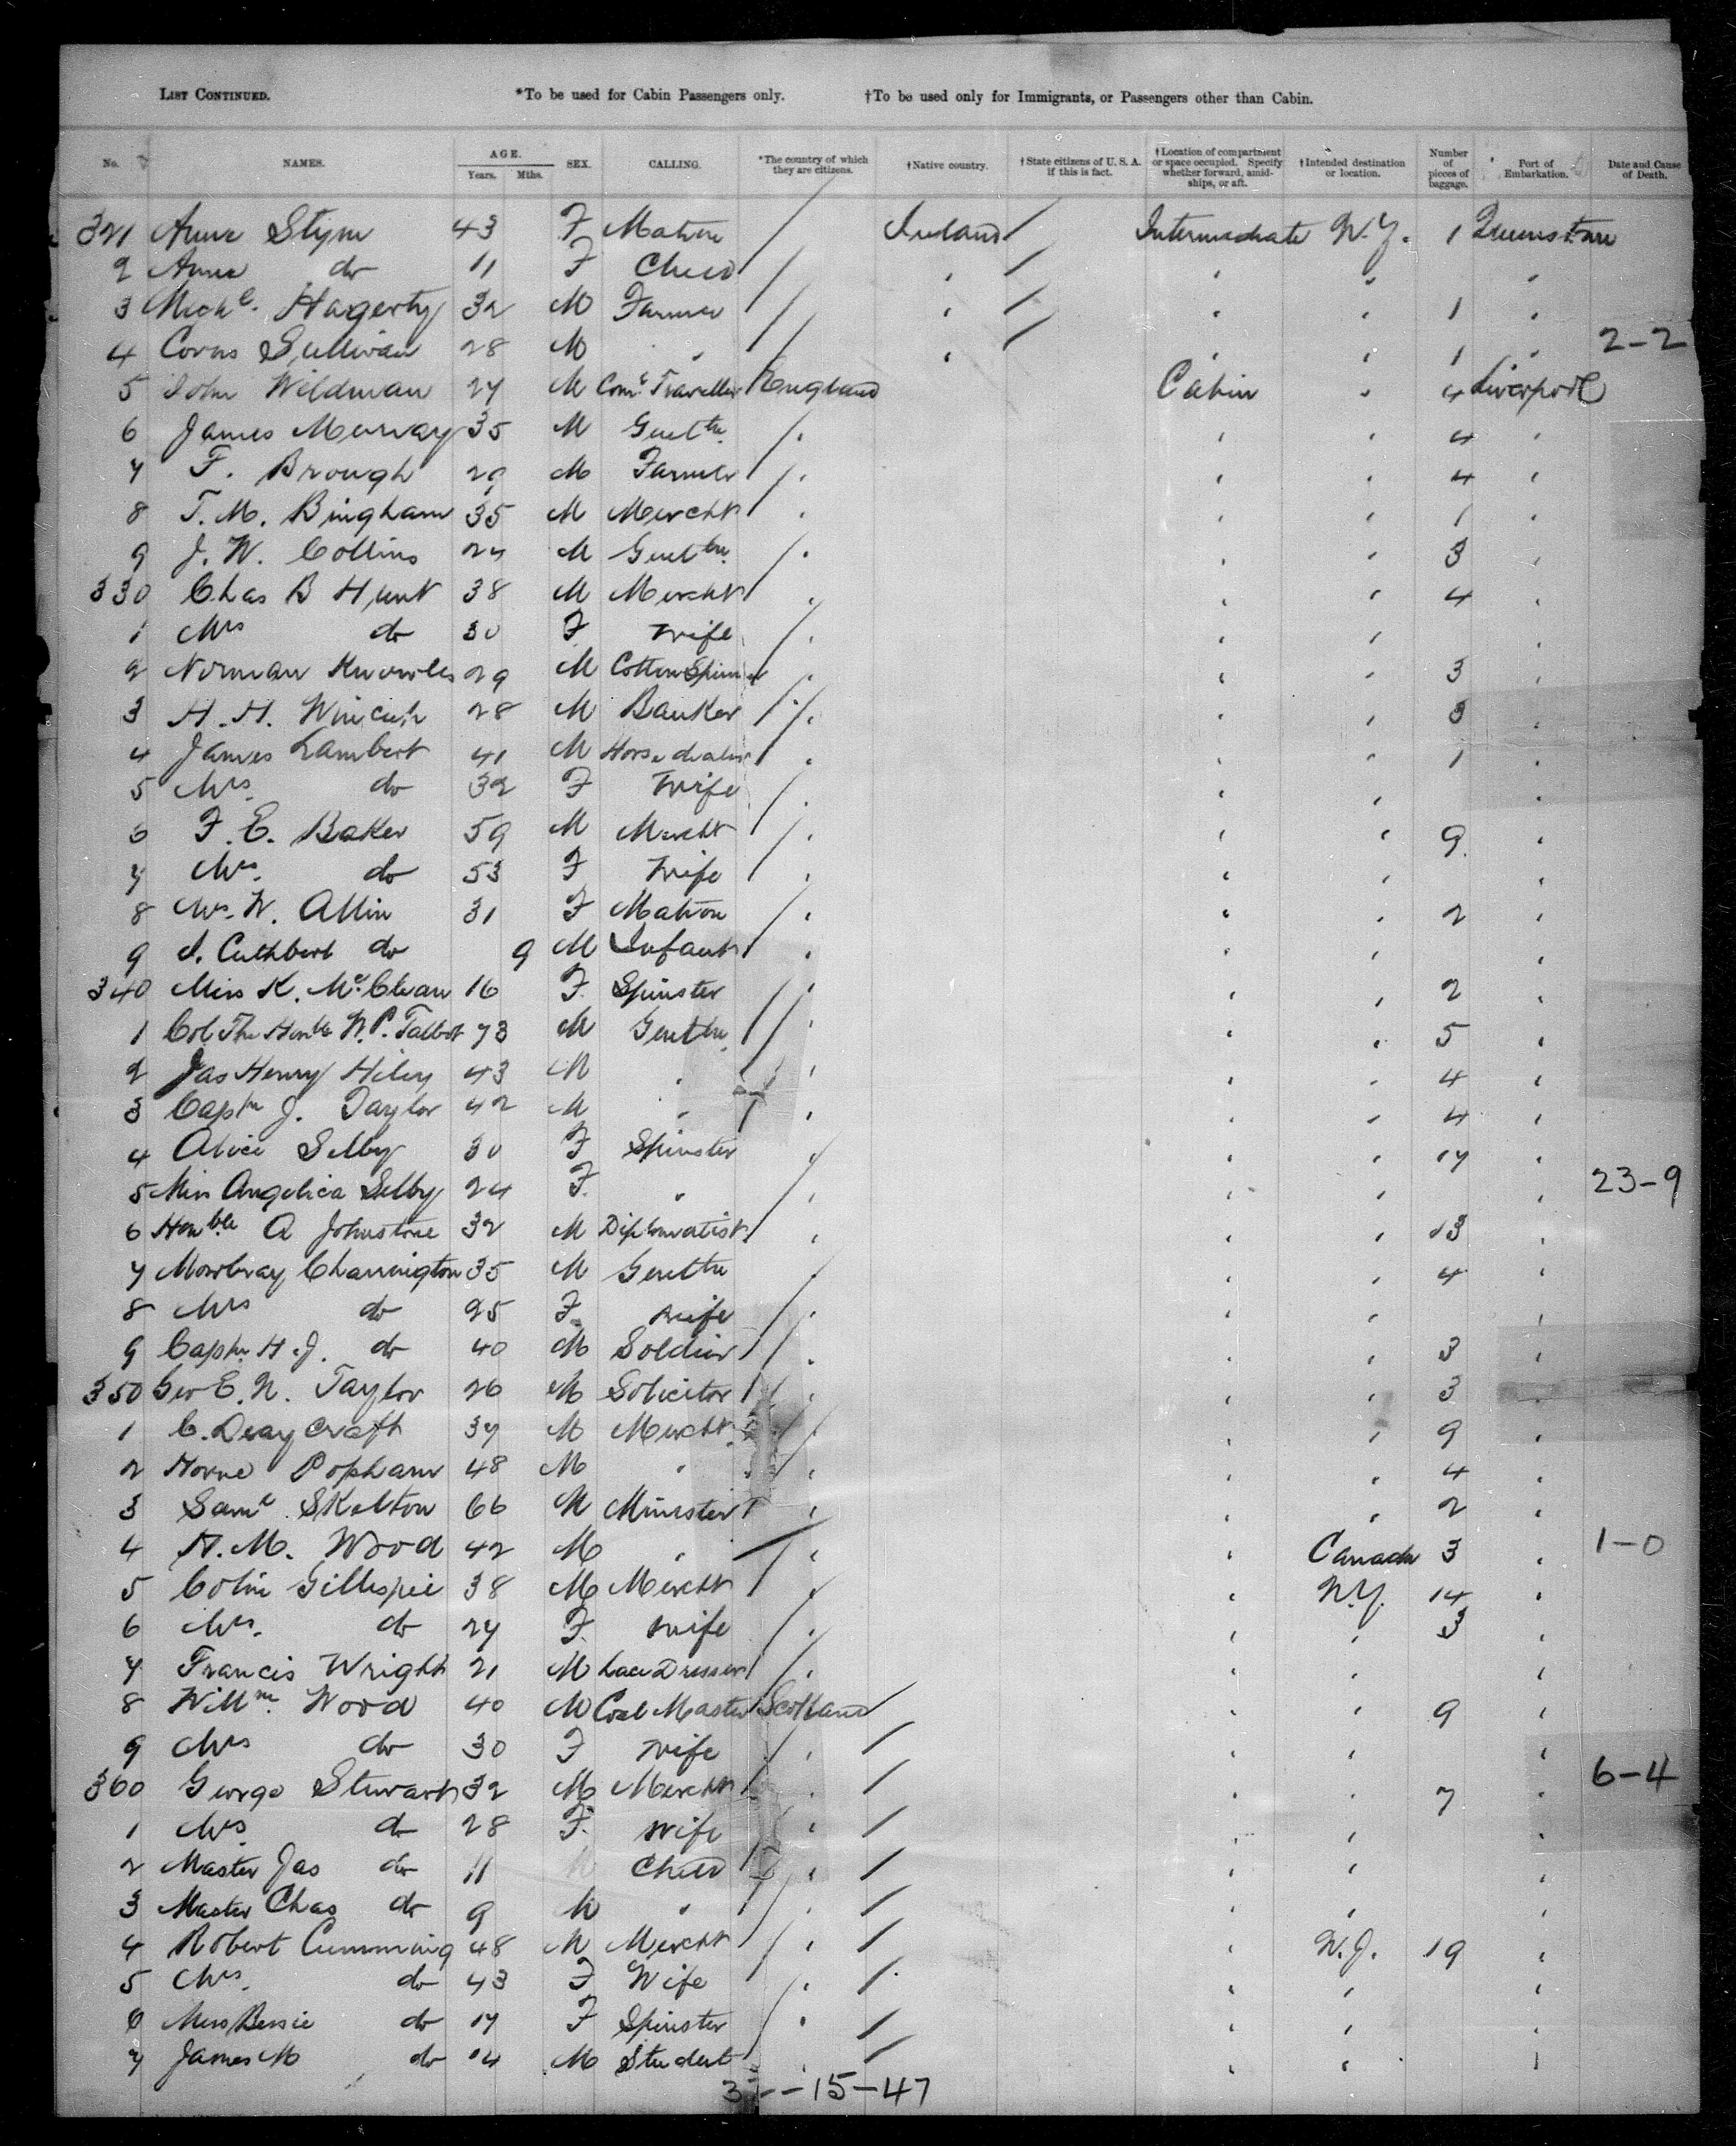 LIST CONTINUED. *To be used for Cabin Passengers only. †To be used only for Immigrants, or Passengers other than Cabin.
No. NAMES. AGE. Years. Mths. SEX. CALLING. *The country of which they are citizens. †Native country. †State citizens of U. S. A. if this is fact. †Location of compartment or space occupied. Specify whether forward, amidships, or aft. †Intended destination or location. Number of pieces of baggage. Port of Embarkation. Date and Cause of Death.
321 Anne Stym 43 F Matron Ireland Intermediate N.Y. 1 Queenstown
2 Anne do 11 F Child
3 Michl. Hagerty 32 M Farmer 1
4 Corns Sullivan 28 M " 1 2-2
5 John Wildman 27 M Coml Traveller England Cabin " 4 Liverpool
6 James Murray 35 M Gentln. 4
7 F. Brough 29 M Farmer 4
8 T. M. Bingham 35 M Mercht 1
9 J. W. Collins 24 M Gentln. 3
330 Chas B Hunt 38 M Mercht 4
1 Mrs do 30 F Wife
2 Norman Knowles 29 M Cotton Spinner 3
3 H. H. 28 M Banker 3
4 James Lambert 41 M Horse dealer 1
5 Mrs. do 32 F Wife
6 F. E. Baker 59 M Mercht 9
7 Mrs. do 53 F Wife
8 Mrs. W. Allin 31 F Matron 2
9 J. Cuthbert do 9 M Infant
340 Miss K. McClean 16 F Spinster 2
1 Col The Honble W. P. Talbot 73 M Gentln 5
2 Jas Henry Hiley 43 M " 4
3 Captn J. Taylor 42 M " 4
4 Alice Selby 30 F Spinster 17
5 Miss Angelica Selby 24 F. " 23-9
6 Honble A Johnstone 32 M Diplomatist 13
7 Mowbray Charrington 35 M Gentln 4
8 Mrs do 25 F wife
9 Captn. H. J. do 40 M Soldier 3
350 Geo E. N. Taylor 26 M Solicitor 3
1 C. Deaycraft 37 M Mercht 9
2 Horne Popham 48 M " 4
3 Saml. Skelton 66 M Minister 2
4 H. M. Wood 42 M " Canada 3 1-0
5 Colin Gillespie 38 M Mercht N.Y. 14
6 Mrs. do 27 F. wife 3
7 Francis Wright 21 M Lace Dresser
8 Willm. Wood 40 M Coal Master Scotland 9
9 Mrs do 30 F Wife
360 George Stewart 32 M Mercht 7 6-4
1 Mrs do 28 F. wife
2 Master Jas do 11 M Child
3 Master Chas do 9 M "
4 Robert Cumming 48 M Mercht N.J. 19
5 Mrs. do 43 F Wife
6 Miss Bessie do 17 F Spinster
7 James M do 14 M Student
15-47